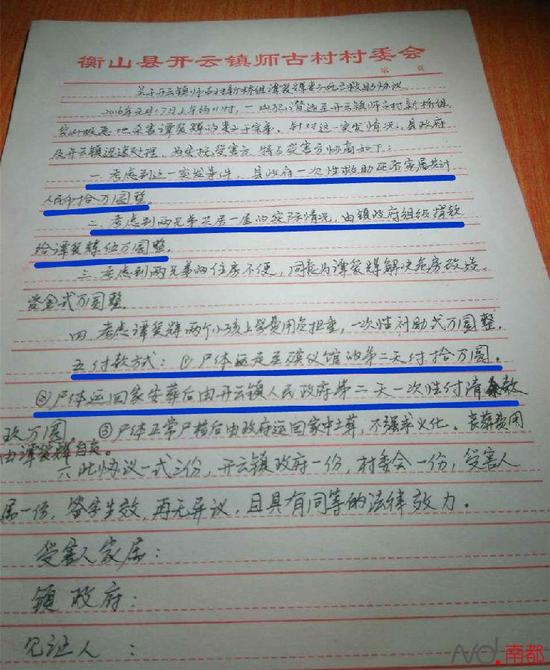 衡山县开云镇师古村村委会
第 页
关于开云镇师古村新桥组谭 辉妻子死亡救助协议
2016年元月17日上午约11时,一逃犯潜逃至开云镇师古村新桥组
地杀害谭 辉的妻子 。针对这一突发情况,县政府
及开云镇迅速处理,为安抚受害方,特与受害方协商如下:
一、考虑到这一突发事件,县政府一次性救助死者家属共计
人民币拾万圆整
二、考虑到两兄弟共居一屋的实际情况,由镇政府组织捐款
给谭 辉伍万圆整。
三、考虑到两兄弟的住房不便,同意为谭 辉解决危房改造
资金弍万圆整。
四、考虑谭 辉两个小孩上学费用负担重,一次性补助弍万圆整。
五、付款方式:①尸体运走至殡仪馆的第二天付拾万圆。
②尸体运回家安葬后由开云镇人民政府第二天一次性付清余款
玖万圆 ③尸体正常尸检后由政府运回家中土葬,不强求火化。丧葬费用
由谭 辉自负。
六、此协议一式三份,开云镇政府一份,村委会一份,受害人
属一份,签字生效,再无异议,且具有同等的法律效力。
受害人家属:
镇政府:
见证人:
南都